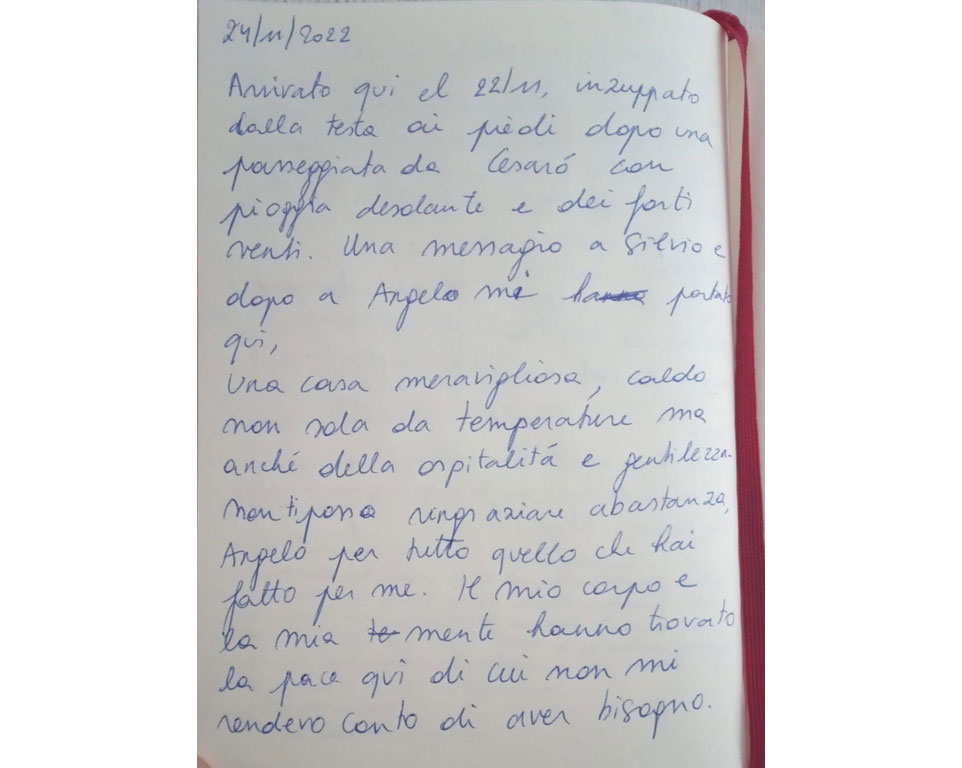 24/11/2022
Arrivato qui el 22/11, inzuppato
dalla testa ai piedi dopo una
passeggiata da Cesaró con
pioggia desolante e dei forti
venti. Una messagio a Silvio e
dopo a Angelo mi hanno portato
qui,
Una casa meravigliosa, caldo
non sola da temperature ma
anché della ospitalitá e gentilezza.
non ti posso ringraziare abastanza,
Angelo per tutto quello che hai
fatto per me. Il mio corpo e
la mia te mente hanno trovato
la pace qui di cui non mi
rendevo conto di aver bisogno.